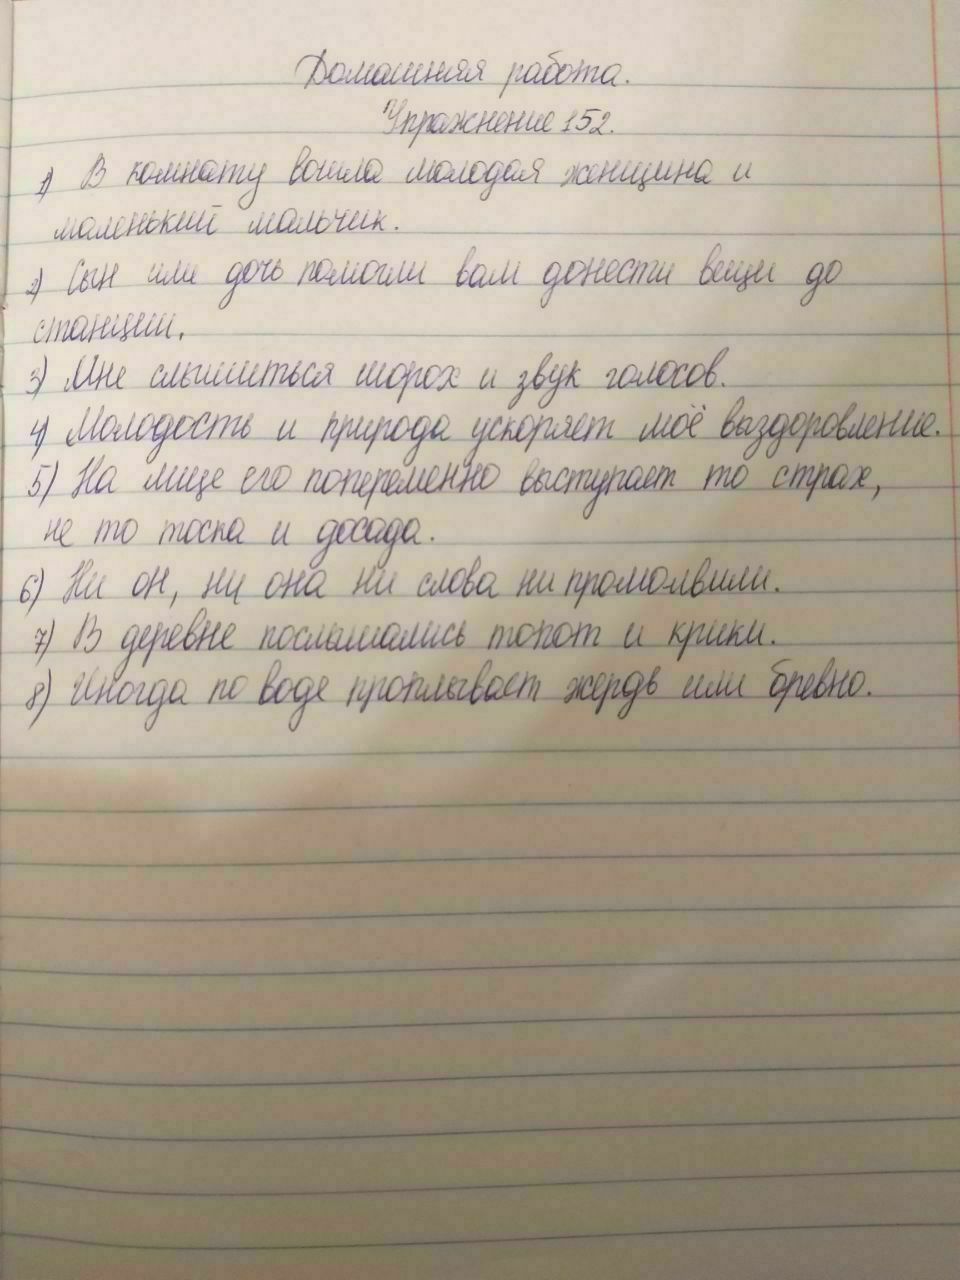 Домашняя работа.
Упражнение 152.
1) В комнату вошла молодая женщина и
маленький мальчик.
2) Сын или дочь помогли вам донести вещи до
станции.
3) Мне слышиться шорох и звук голосов.
4) Молодость и природа ускоряет моё выздоровление.
5) На лице его попеременно выступает то страх,
не то тоска и досада.
6) Ни он, ни она ни слова ни промолвили.
7) В деревне послышались топот и крики.
8) Иногда по воде проплывает жердь или бревно.